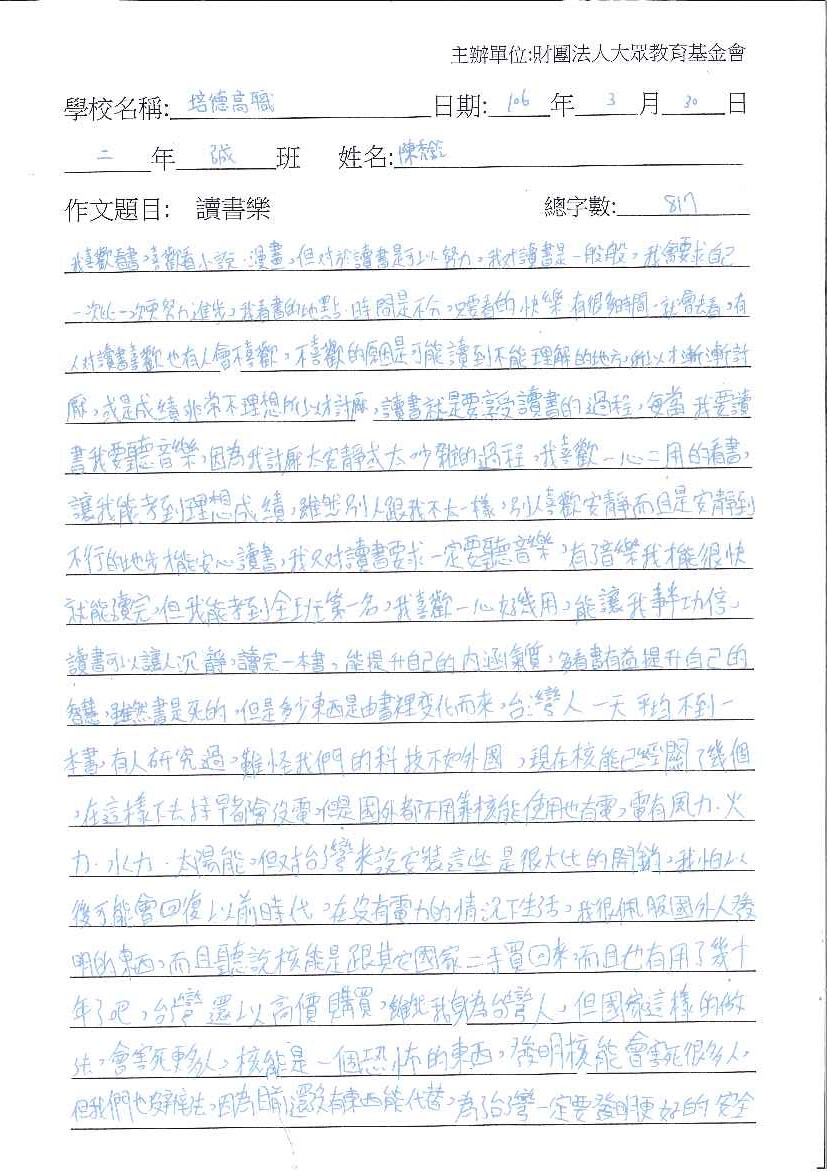 主辦單位:財團法人大眾教育基金會
學校名稱: 培德高職 日期: 106 年 3 月 30 日
二 年 誠 班 姓名: 陳
作文題目: 讀書樂 總字數: 817
我喜歡看書,喜歡看小說、漫畫,但對於讀書是可以努力,我對讀書是一般般,我會要求自己
一次比一次更努力進步,我看書的地點、時間是不分,只要看的快樂有很多時間,就會去看,有
人對讀書喜歡也有人會不喜歡,不喜歡的原因是可能讀到不能理解的地方,所以才漸漸討
厭,或是成績非常不理想所以才討厭,讀書就是要享受讀書的過程,每當我要讀
書我要聽音樂,因為我討厭太安靜或太吵雜的過程,我喜歡一心二用的看書,
讓我能考到理想成績,雖然別人跟我不太一樣,別人喜歡安靜而且是安靜到
不行的地步才能安心讀書,我只對讀書要求一定要聽音樂,有了音樂我才能很快
就能讀完,但我能考到全班第一名,我喜歡一心好幾用,能讓我事半功倍,
讀書可以讓人沉靜,讀完一本書,能提升自己的內涵氣質,多看書有益提升自己的
智慧,雖然書是死的,但是多少東西是由書裡變化而來,台灣人一天平均不到一
本書,有人研究過,難怪我們的科技不如外國,現在核能已經關了幾個
,在這樣下去持早都會沒電,但是國外都不用靠核能使用也有電,電有風力、火
力、水力、太陽能,但對台灣來說安裝這些是很大比的開銷,我怕以
後可能會回復以前時代,在沒有電力的情況下生活,我很佩服國外人發
明的東西,而且聽說核能是跟其它國家二手買回來,而且也有用了幾十
年了吧,台灣還以高價購買,雖然我身為台灣人,但國家這樣的做
法,會害死更多人,核能是一個恐怖的東西,發明核能會害死很多人,
但我們也沒辦法,因為目前還沒有東西能代替,為了台灣一定要發明更好的安全